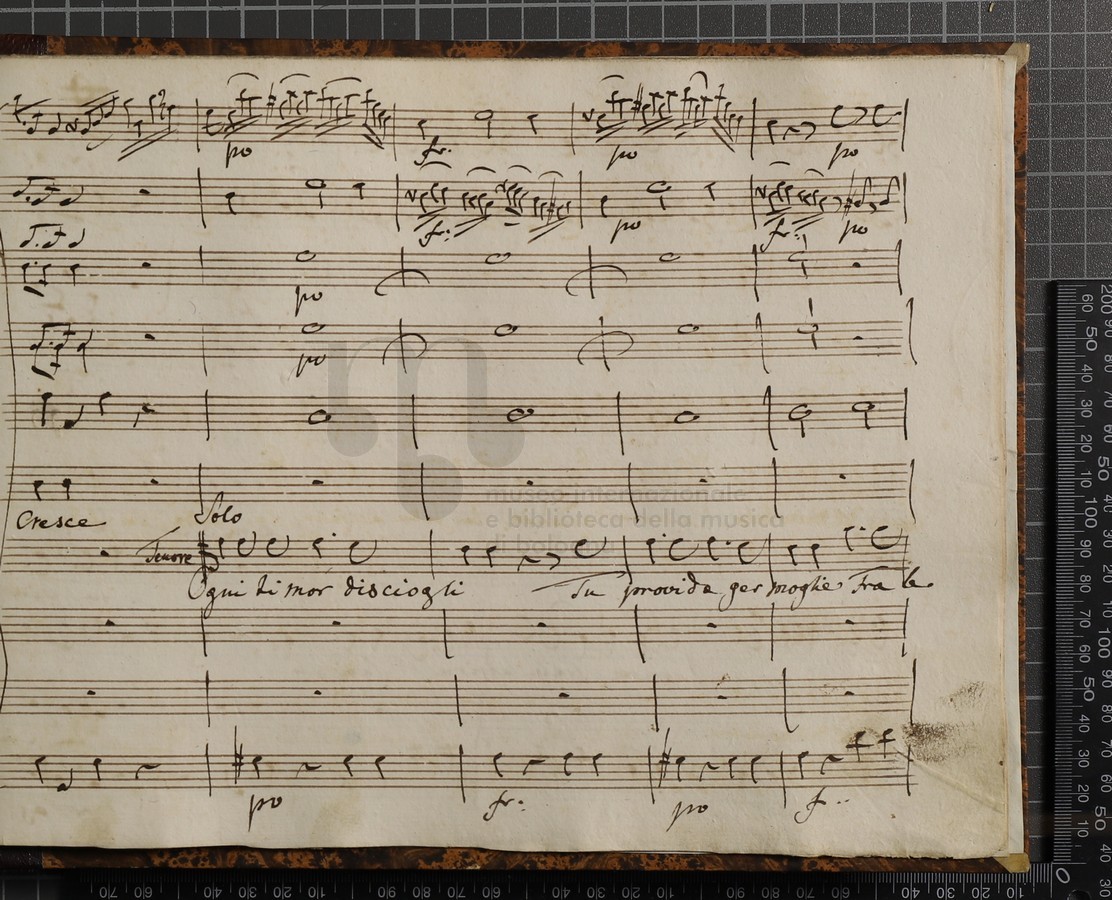 po fr: po po
fr: po fr: po
po
po
Cresce Solo
Tenore
Ogni timor disciogli Tu provida germoglie Fra le
museo internazionale
e biblioteca della musica
di bologna
po fr: po f: